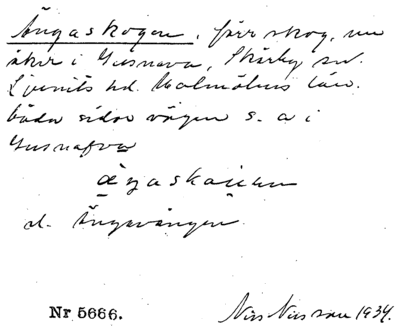 Ängaskogen, förr skog, nu
åker i Gusnava, Skårby sn.
Ljunits hd. Malmöhus län.
båda sidor vägen s. a i
Gusnafva
d. Ängavången
Nr 5666.
Nils Nilsson 1934.